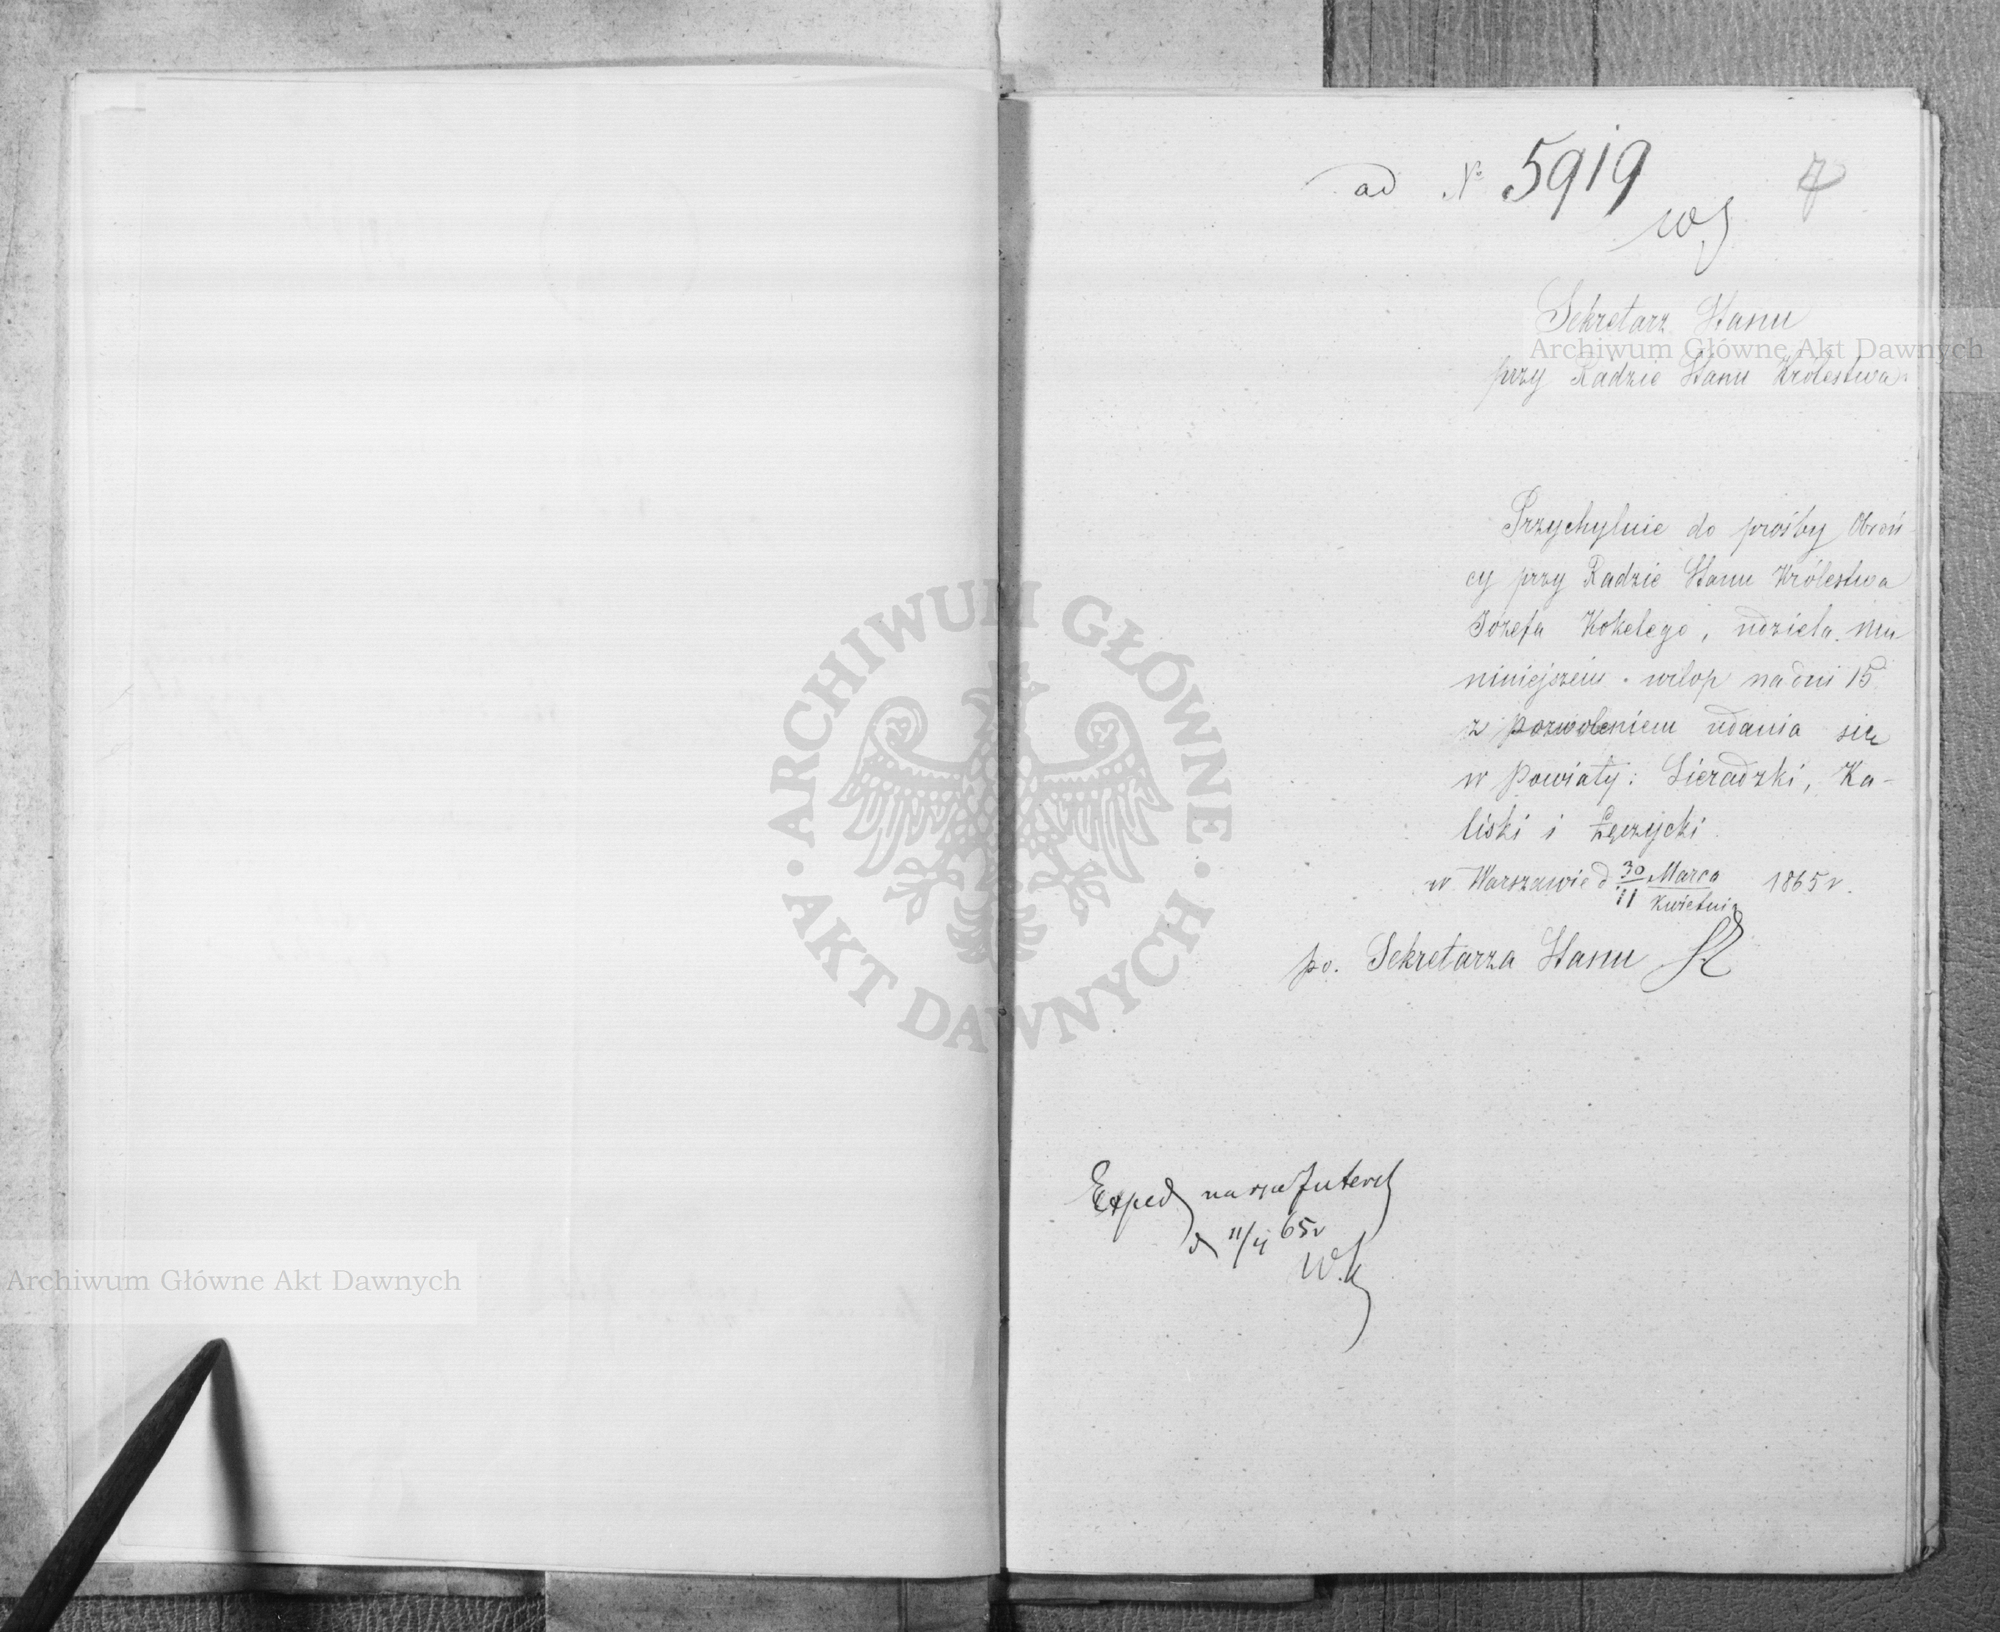 ad № 5919
7
Sekretarz Stanu
przy Radzie Stanu Królestwa
Przychylnie do prośby Obroń-
cy przy Radzie Stanu Królestwa
Józefa Kokelego, udziela mu
niniejszem urlop na dni 15
z pozwoleniem udania się
w Powiaty: Sieradzki, Ka-
liski i Łęczycki.
w Warszawie d 30/11 Marca/Kwietnia 1865 r.
po. Sekretarza Stanu
Exped na ręce Interes
d 11/4 65 r
W.K
ARCHIWUM GŁÓWNE
AKT DAWNYCH
Archiwum Główne Akt Dawnych
Archiwum Główne Akt Dawnych